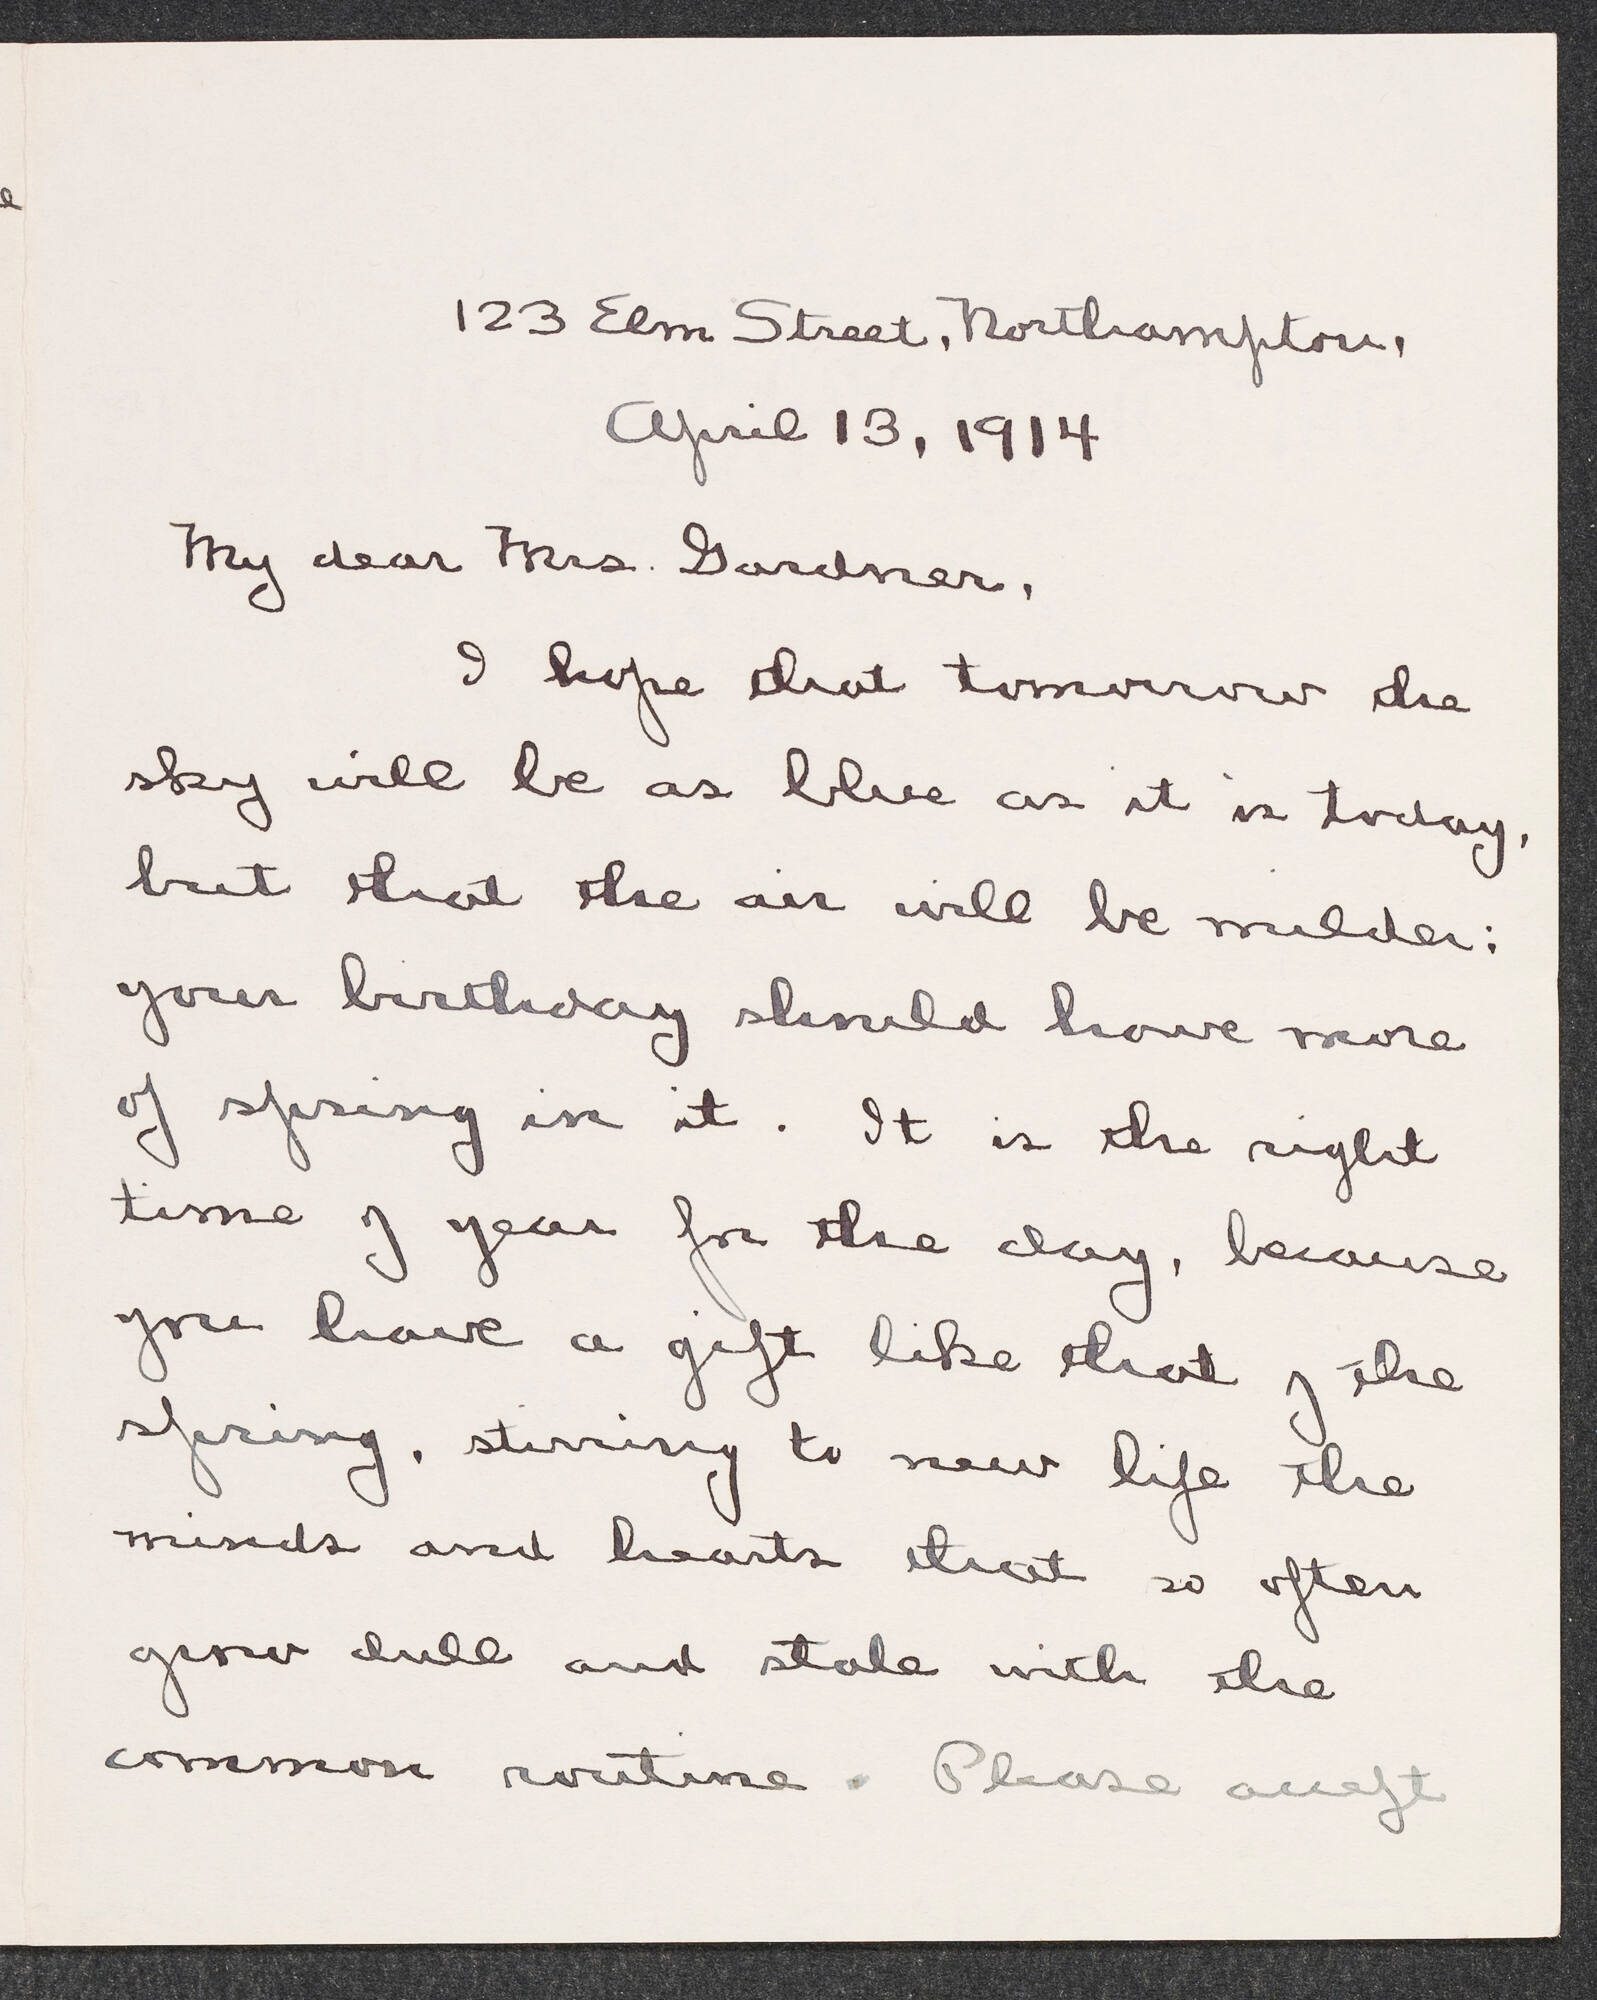 123 Elm Street, Northampton,
April 13, 1914
My dear Mrs. Gardner,
I hope that tomorrow the
sky will be as blue as it is today,
but that the air will be milder:
your birthday should have more
of spring in it. It is the right
time of year for the day, because
you have a gift like that of the
spring, stirring to new life the
minds and hearts that so often
grow dull and stale with the
common routine. Please accept